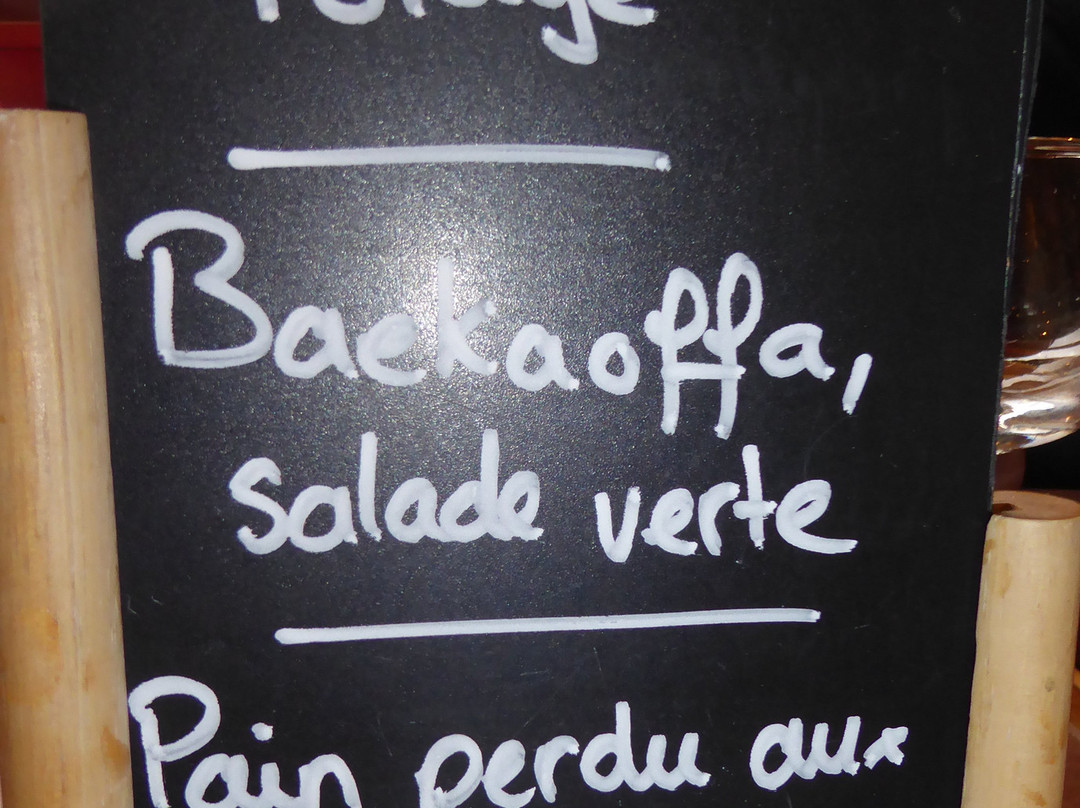 Potage
Baekaoffa,
salade verte
Pain perdu aux